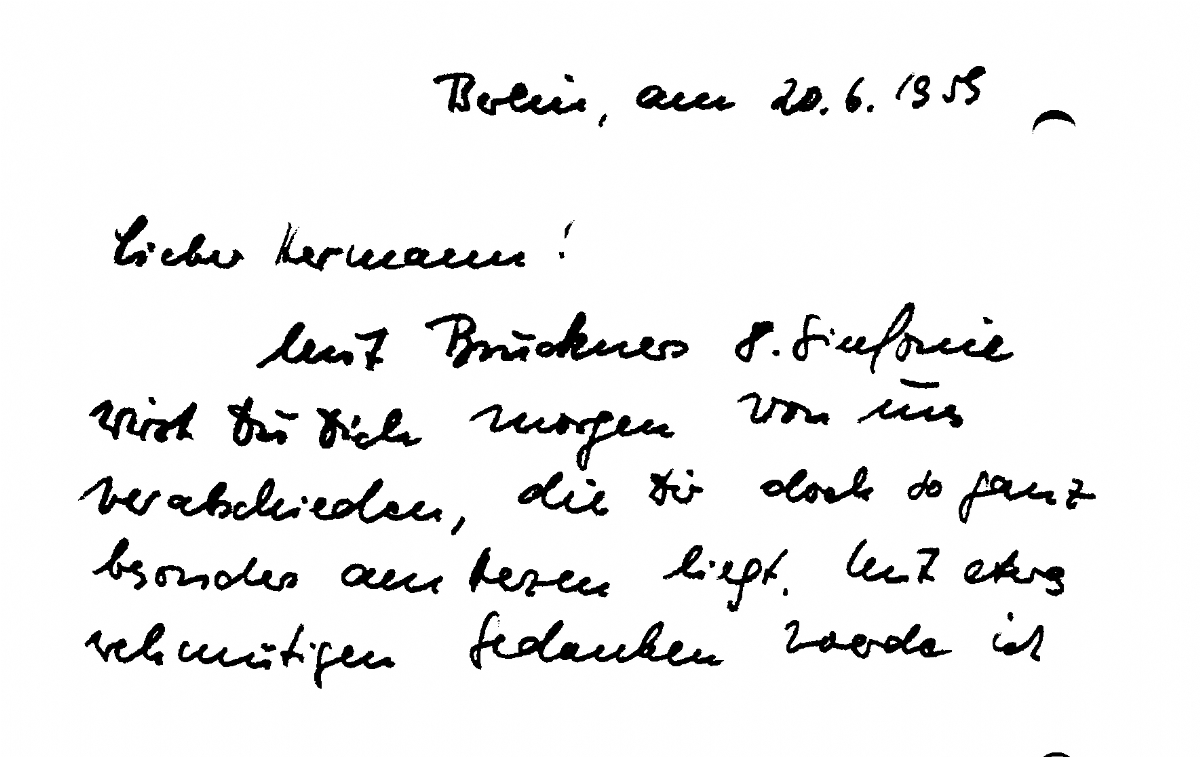 Berlin, am 20.6.1959
Lieber Hermann!
Mit Bruckners 8. Sinfonie
wirst Du Dich morgen von uns
verabschieden, die Dir doch so ganz
besonders am Herzen liegt. Mit etwas
wehmütigen Gedanken werde ich